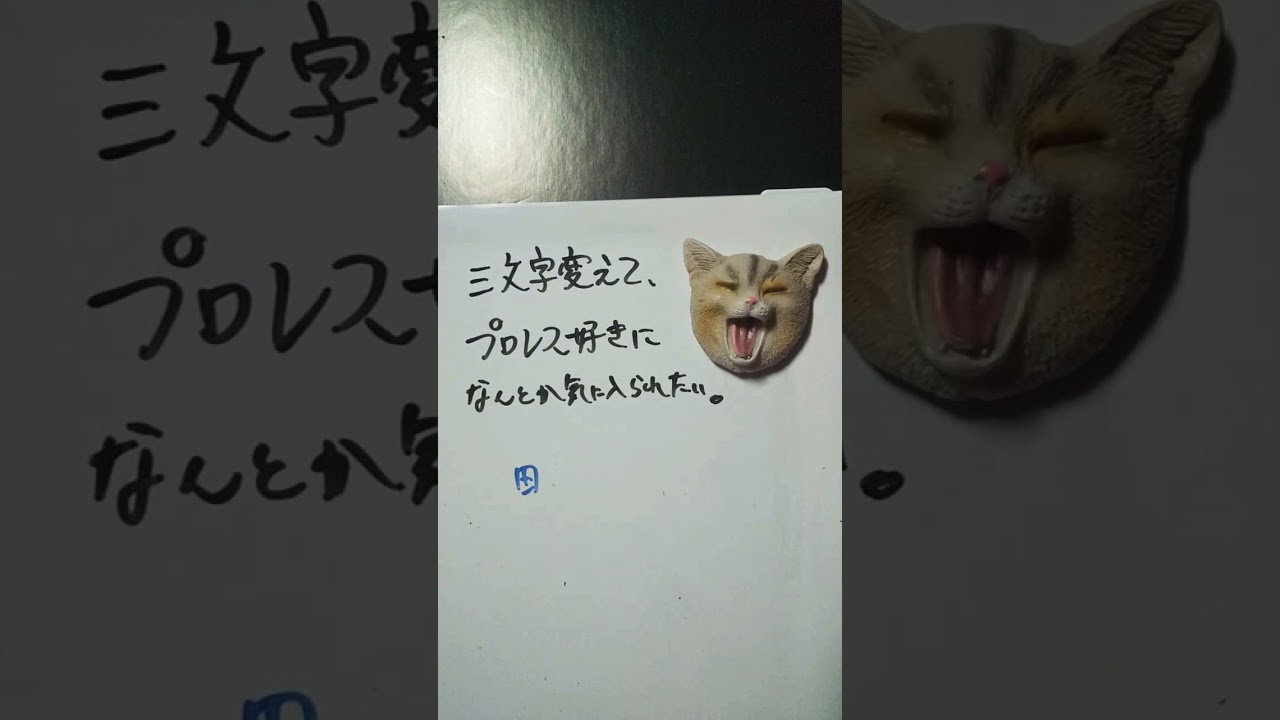 三文字変えて、
プロレス好きに
なんとか気に入られたい。